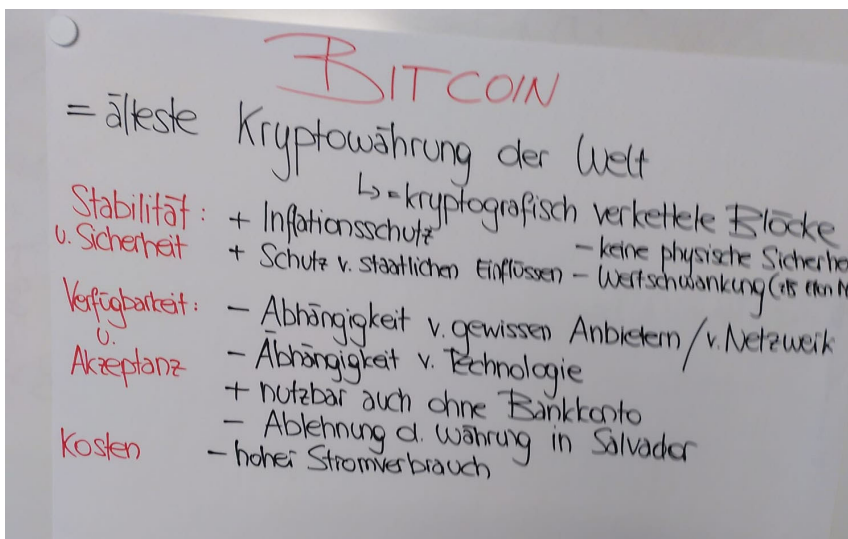 BITCOIN
= älteste Kryptowährung der Welt
↳ = kryptografisch verkettete Blöcke
Stabilität : + Inflationsschutz - keine physische Sicherhe
u. Sicherheit + Schutz v. staatlichen Einflüssen - Wertschwankung
Verfügbarkeit : - Abhängigkeit v. gewissen Anbietern / v. Netzwerk
u.
Akzeptanz - Abhängigkeit v. Technologie
+ nutzbar auch ohne Bankkonto
- Ablehnung d. Währung in Salvador
Kosten - hoher Stromverbrauch